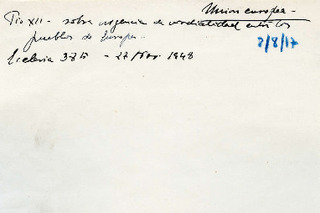 Union europea
Pio XII - sobre urgencia de cordialidad entre los
pueblos de Europa.
2/8/17
Ecclesia 385 - 27 Nov. 1948